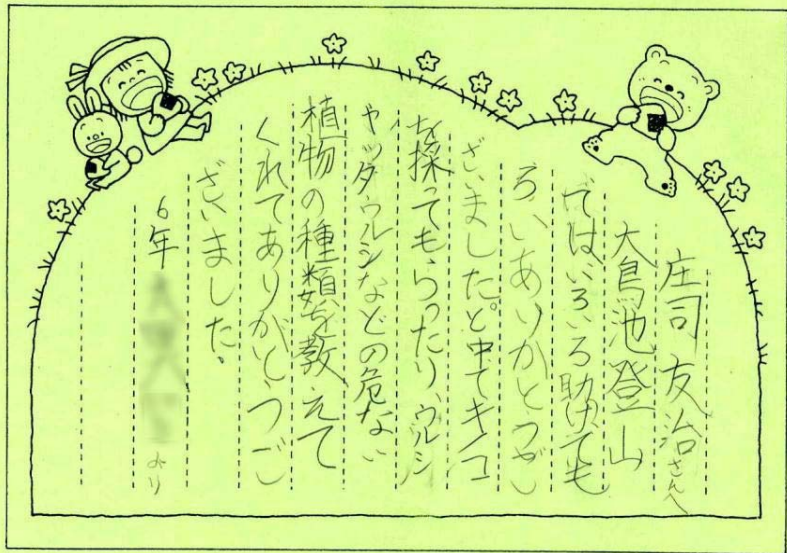 庄司友治さんへ
大鳥池登山
ではいろいろ助けても
らいありがとうござい
ざいました。と中でキノコ
を採ってもらったり、ウルシ
ヤッタウルシなどの危ない
植物の種類を教えて
くれてありがとうご
ざいました。
6年
より